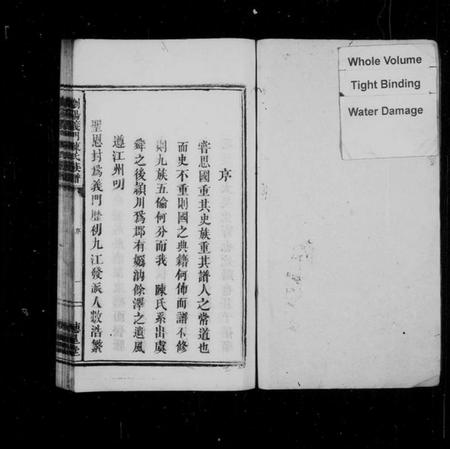 序
嘗思國重其史族重其譜人之常道也
而史不重則國之典籍何佈而譜不修
則九族五倫何分而我 陳氏系出虞
舜之後潁川為郡有媯汭餘澤之遺風
遵江州明
聖恩封為義門歷初九江發派人數浩繁
瀏陽義門陳氏族譜
序
一
Whole Volume
Tight Binding
Water Damage